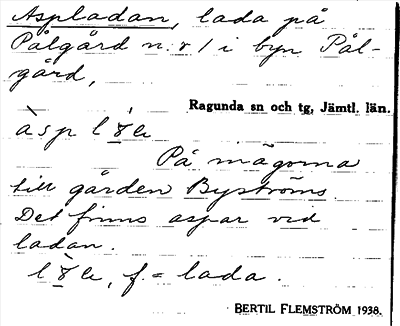 Aspladan, lada på
Pålgård n:r 1 i byn Pål-
gård,
Ragunda sn och tg, Jämtl. län.
På mägorna
till gården Byströms.
Det finns aspar vid
ladan.
f. = lada.
BERTIL FLEMSTRÖM 1938.